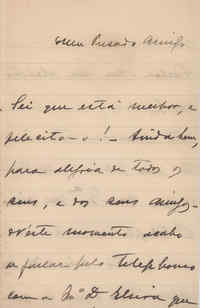 Meu Presado Amigo
Sei que está melhor, e
felicito-o! — Ainda bem,
para alegria de todos os
seus, e dos seus amigos.
N'este momento acabo
de fallar pelo Telephone
com a D. Elvira que